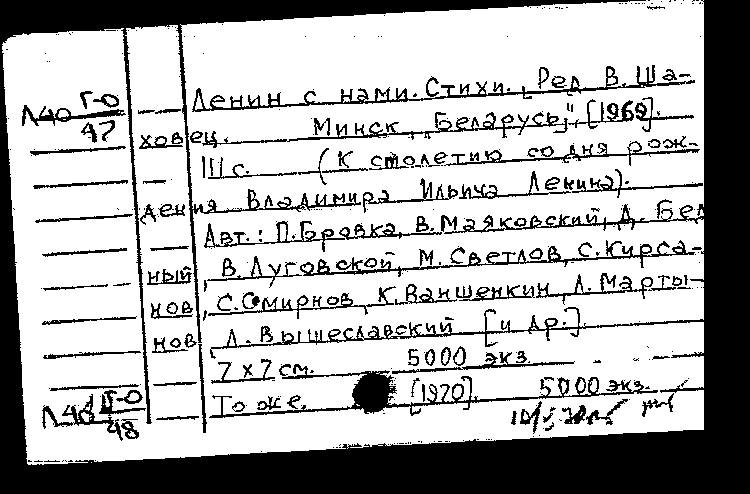 Л40 Г-0
47
Ленин с нами. Стихи. [Ред. В. Ша-
ховец. Минск, „Беларусь", [1969].
111 с. (К столетию со дня рож-
дения Владимира Ильича Ленина).
Авт.: П. Бровка, В. Маяковский, Д. Бед
ный, В. Луговской, М. Светлов, С. Кирса-
нов, С. Смирнов, К. Ваншенкин, Л. Марты-
нов, Л. Вышеславский [и др.].
7 x 7 см. 5000 экз.
То же. [1970]. 5000 экз.
Г-0
48